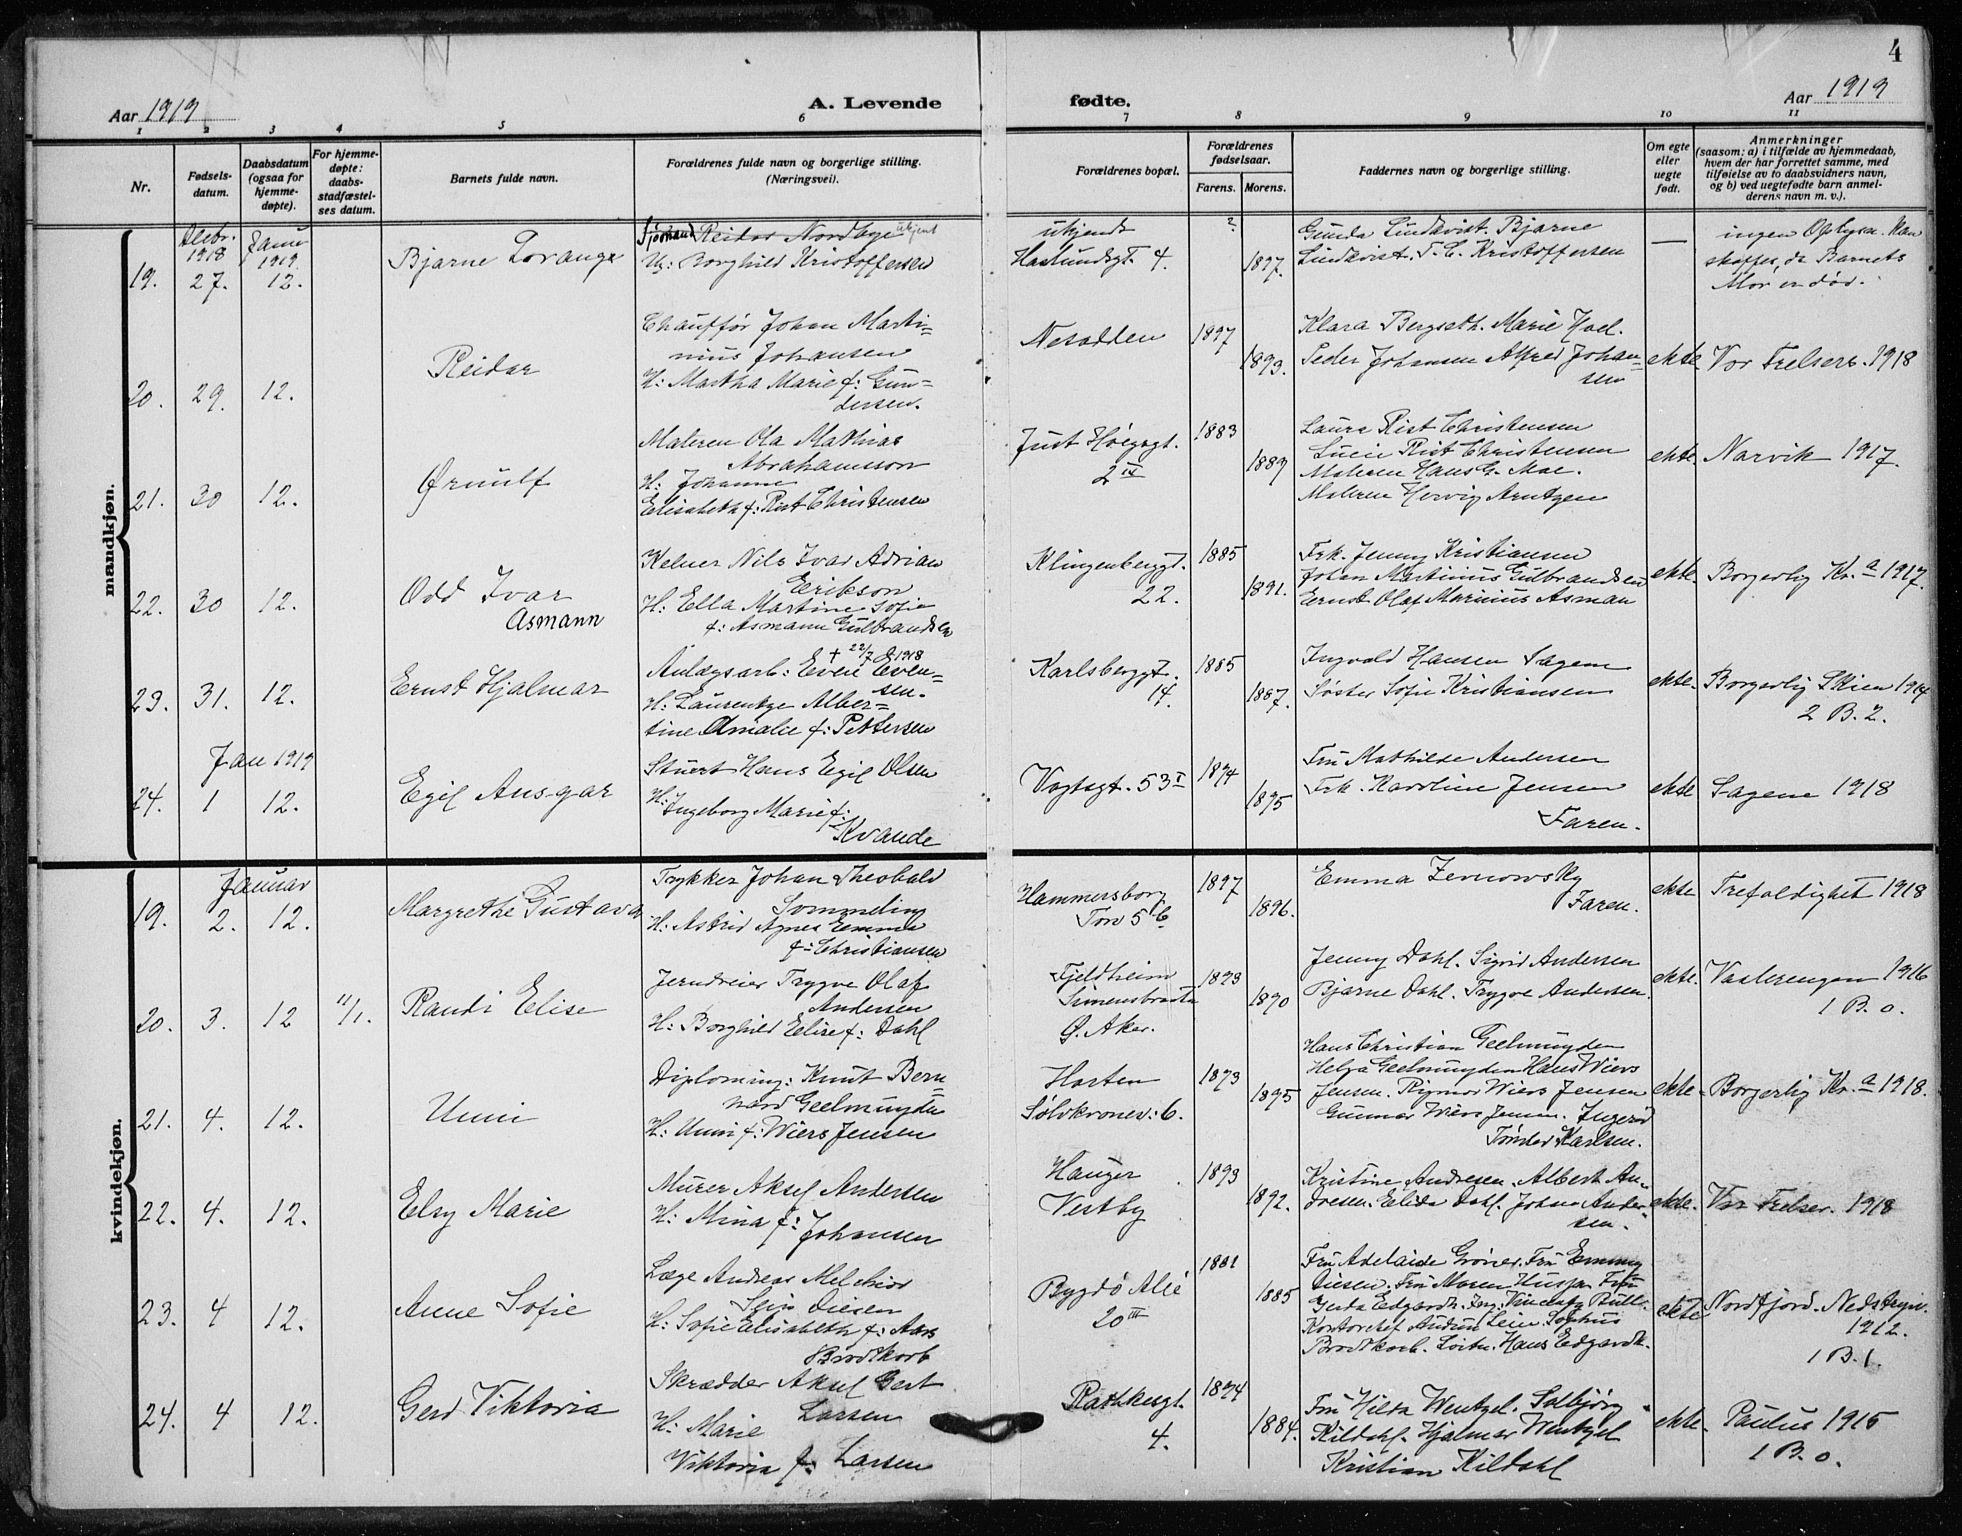 4
Aar 1919
A. Levende
fødte.
Aar 1919
1 2 3 4 5 6 7 8 9 10 11
Nr.
Fødsels-
datum.
Daabsdatum
(ogsaa for
hjemme-
døpte).
For hjemme-
døpte:
daabs-
stadfæstel-
ses datum.
Barnets fulde navn.
Forældrenes fulde navn og borgerlige stilling.
(Næringsvei).
Forældrenes bopæl.
Forældrenes
fødselsaar.
Farens. Morens.
Faddernes navn og borgerlige stilling.
Om egte
eller
uegte
født.
Anmerkninger
(saasom: a) i tilfælde av hjemmedaab,
hvem der har forrettet samme, med
tilføielse av to daabsvidners navn,
og b) ved uegtefødte barn anmel-
derens navn m. v.).
mandkjøn.
Decbr.
1918
Januar
1919
19. 27. 12.
Bjarne Lorange
Sjømand Reidar Nordbye ukjent
U: Borghild Kristoffersen
ukjendt
Haslundsgt. 4.
?
1897.
Gunda Lundkvist. Bjarne
Lindkvist. T. C. Kristoffersen
—
ingen Oplysn. kan
skaffes, da Barnets
Mor er død.
20. 29. 12.
Reidar
Chauffør Johan Marti=
nius Johansen
H: Martha Marie f: Gun=
dersen.
Nesodden
1897
1893.
Klara Bergseth. Marie Hoel.
Peder Johansen Alfred Johan=
sen
ekte
Vor Frelsers. 1918
21. 30 12.
Ørnulf
Maleren Ola Mathias
Abrahamsson
H: Johanne
Elisabeth f: Rist Christensen
Just Høegsgt.
2 IV
1883
1889
Laura Rist Christensen
Lucie Rist Christensen
Maleren Hans G. Moe.
Maleren Hervig Arntzen
ekte
Narvik 1917.
22. 30 12.
Odd Ivar
Asmann
Kelner Nils Ivar Adrian
Eerikson
H: Ella Martine Sofie
f: Asmann Gulbrandsen
Klingenberggt.
22.
1885
1891.
Frk. Jenny Kristiansen
Johan Martinius Gulbrandsen
Ernst Olaf Marinius Asman
ekte.
Borgerlig Kr.a 1917.
23. 31. 12.
Ernst Hjalmar
+ 22/7 1918
Anlægsarb: Even Even=
sen.
H: Laurentze Alber=
tine Amalie f: Pettersen
Karlsberggt.
14.
1885
1887.
Ingvald Hansen Sagen
Søster Sofie Kristiansen
ekte.
Borgerlig Skien 1914
2 B. 2.
Jan 1919
24. 1 12.
Egil Ansgar
Stuert Hans Egil Olsen
H: Ingeborg Marie f:
Kvande
Vogtsgt. 53 I
1894
1895
Fru Mathilde Andersen
Frk. Karoline Jensen
Faren.
ekte
Sagene 1918
kvindekjøn.
Januar
19. 2. 12.
Margrethe Gustava
Trykker Johan Theobald
Sommeling
H: Astrid Agnes Emma
f: Christiansen
Hammersborg
Torv 5 b
1897
1896.
Emma Zernowsky
Faren.
ekte
Trefoldighet 1918
20. 3. 12 11/1.
Randi Elise
Jerndreier Trygve Olaf
Andersen
H: Borghild Elise f: Dahl
Fjeldheim
Simensbraaten
Ø. Aker.
1893
1890
Jenny Dahl. Sigrid Andersen
Bjarne Dahl. Trygve Andersen.
ekte.
Vaalerengen 1916
1 B. 0.
21. 4. 12.
Unni
Diploming: Knut Bern=
hard Geelmuyden
H: Unni f: Wiers Jensen
Horten
Sølvkronev: 6.
1893
1895
Hans Christian Geelmuyden
Helga Geelmuyden Hans Wiers
Jensen. Rigmor Wiers Jensen
Gunnar Wiers Jensen. Ingerid
Tønder Karlsen.
ekte.
Borgerlig Kr.a 1918.
22. 4. 12.
Elsy Marie
Murer Aksel Andersen
H: Mina f:
Johansen
Hauger
Vestby
1893
1892.
Kristine Andresen. Albert An=
dresen. Elida Dahl. Johan Ander=
sen.
ekte.
Vor Frelser. 1918
23. 4 12.
Anne Sofie
Læge Andreas Melchior
Seip Diesen
H: Sofie Elisabeth f: Aars
Brodtkorb
Bygdø Allé
20 III
1881
1885
Fru Adelaide Grøner. Fru Emmy
Diesen. Fru Maren Fru
Gerda Edgardh. Ing. Vincent Bull.
Kontorchef Audun Leim Sophus
Brodtkorb. Løitn. Hans Edgardh.
ekte
Nordfjord. Nedstryn.
1912.
1 B. 1.
24. 4 12.
Gerd Viktoria
Skrædder Aksel Gert
Larsen
H: Marie
Viktoria f: Larsen
Rathkesgt.
4.
1894
1884.
Fru Hilda Wentzel. Solbjørg
Kildahl. Hjalmar Wentzel
Kristian Kildahl
ekte.
Paulus 1915
1 B. 0.